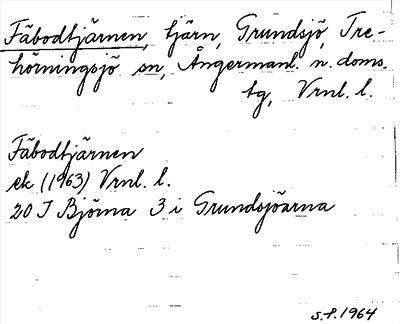 Fäbodtjärnen, tjärn, Grundsjö, Tre-
hörningsjö sn, Ångermanl. n. doms.
tg, Vrnl. l.
Fäbodtjärnen
ek (1963) Vrnl. l.
20 J Björna 3 i Grundsjöarna
S.P. 1964